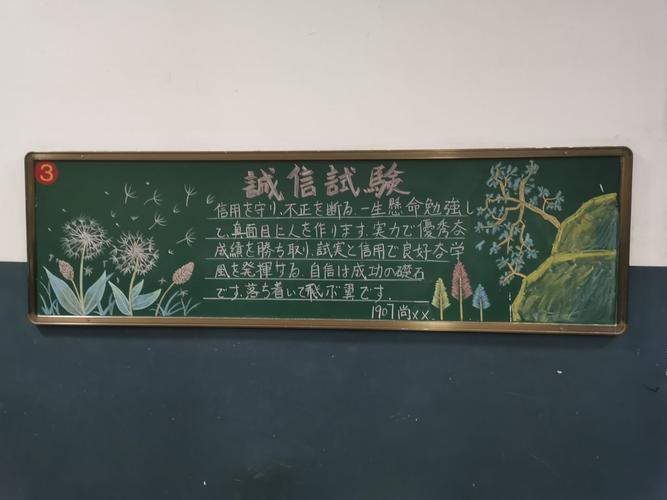 3
誠信試験
信用を守り、不正を断る。一生懸命勉強し
て、真面目に人を作ります。実力で優秀な
成績を勝ち取り、試実と信用で良好な学
風を発揮する。自信は成功の礎石
です、落ち着いて飛ぶ翼です。
1907尚xx